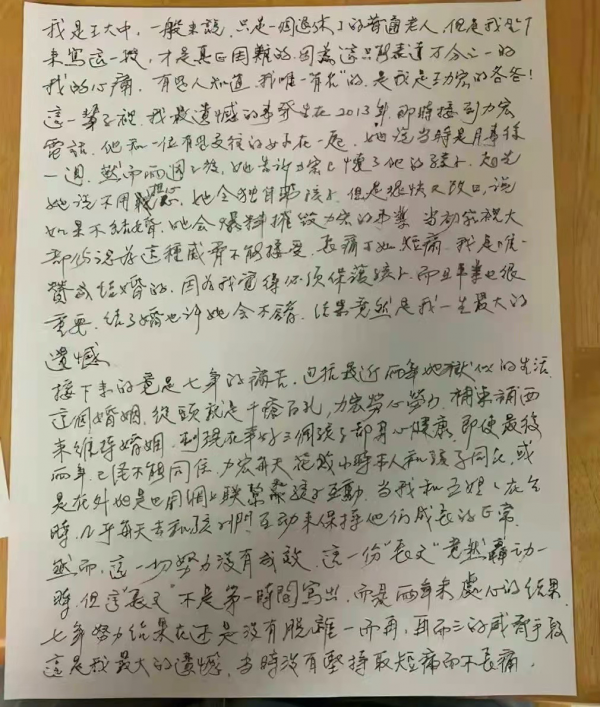 我是王大中，一般來說，只是一個退休了的普通老人，但是我坐下
來寫這一般，才是真正困難的，因為這只能表達万分之一的
我的心痛，有恩人知道，我唯一有名"的，是我是王力宏的爸爸！
這一輩子裡，我最遺憾的事發生在2013年，即時接到力宏
電話，他和一位有思交往的女子在一起，她說當時是月事後
一週，然而兩週之後，她告訴力宏已懷了他的孩子，起先
她說不用擔心，她会獨自帶孩子，但是很快又改口，說
如果不結婚，她会爆料摧毀力宏的事業，當初家裡大
部份認為這種威脅不能接受，長痛不如短痛，我是唯一
贊成結婚的，因為我覺得必須保護孩子，而且事業也很
重要，結了婚也許她会不錯，結果竟然是我一生最大的
遺憾
接下來的竟是七年的痛苦，包括最近兩年地獄似的生活
這個婚姻，從頭就是千瘡百孔，力宏勞心勞力，補東補西
來維持婚姻，到現在幸好三個孩子都身心健康，即使最後
兩年，已經不能同住，力宏每天花幾小時本人和孩子同在，或
是在外地也用網上聯繫跟孩子互動，當我和王媽在台
時，几乎每天去和孩子們互動來保持他们成長的正常
然而，這一切努力沒有成效，這一份"長文"竟然轟动一
時，但這"長文"不是第一時間寫出，而是兩年來處心的結果
七年努力結果在还是沒有脫離一而再，再而三的威脅手段
這是我最大的遺憾，當時沒有堅持取短痛而不長痛，